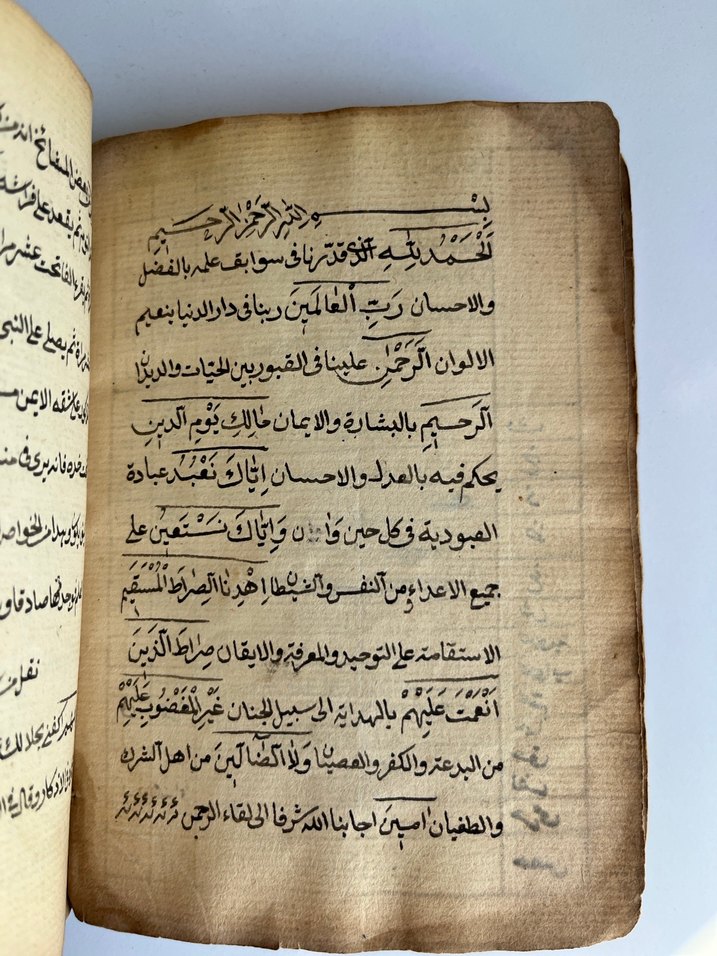 بِسْمِ اللهِ الرَّحْمٰنِ الرَّحِيمِ
اَلْحَمْدُ لِلّٰهِ الَّذى قدّرنا فى سوابق علمه بالفضل
والاحسان رَبِّ الْعَالَمِينَ ربنا فى دار الدنيا بنعيم
الالوان اَلرَّحْمٰنِ علينا فى القبور بين الحيّات والديدان
اَلرَّحِيمِ بالبشارة والايمان مَالِكِ يَوْمِ الدِّينِ
يحكم فيه بالعدل والاحسان اِيَّاكَ نَعْبُدُ عبادة
العبودية فى كل حين وَاِيَّاكَ نَسْتَعِينُ على
جميع الاعداء من النفس والشيطا اِهْدِنَا الصِّرَاطَ الْمُسْتَقِيمَ
الاستقامة على التوحيد والمعرفة والايقان صِرَاطَ الَّذِينَ
اَنْعَمْتَ عَلَيْهِمْ بالهداية الى سبيل الجنان غَيْرِ الْمَغْضُوبِ عَلَيْهِمْ
من البدعة والكفر والعصيان وَلَا الضَّالِّينَ من اهل الشرك
والطغيان اٰمِينَ اجابنا الله شرفا الى لقاء الرحمن
لبعض المشائخ انه من
ثم يقعد على فراشه
الفاتحت عشر مرا
مرة ثم يصلى على النبى
على شقه الايمن
خده فانه يرى فى
الخواص
صادقا
نقل من